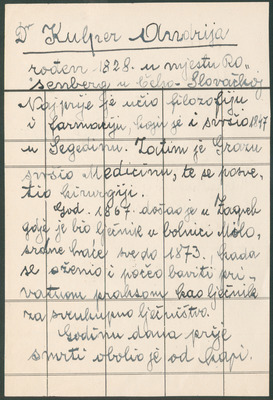 Dr Kulper Andrija
rođen 1828. u mjestu Ro-
senberg u Čeho-Slovačkoj
Najprije je učio filozofiju
i farmaciju, koju je i svršio 1847
u Segedinu. Zatim je Grazu
svršio Medicinu, te se posve-
tio hirurgiji.
God. 1867. došao je u Zagreb
gdje je bio lječnik u bolnici Milo-
srdne braće sve do 1873. kada
se oženio i počeo baviti pri-
vatnom praksom kao lječnik
za sveukupno lječništvo.
Godinu dana prije
smrti obolio je od kapi.